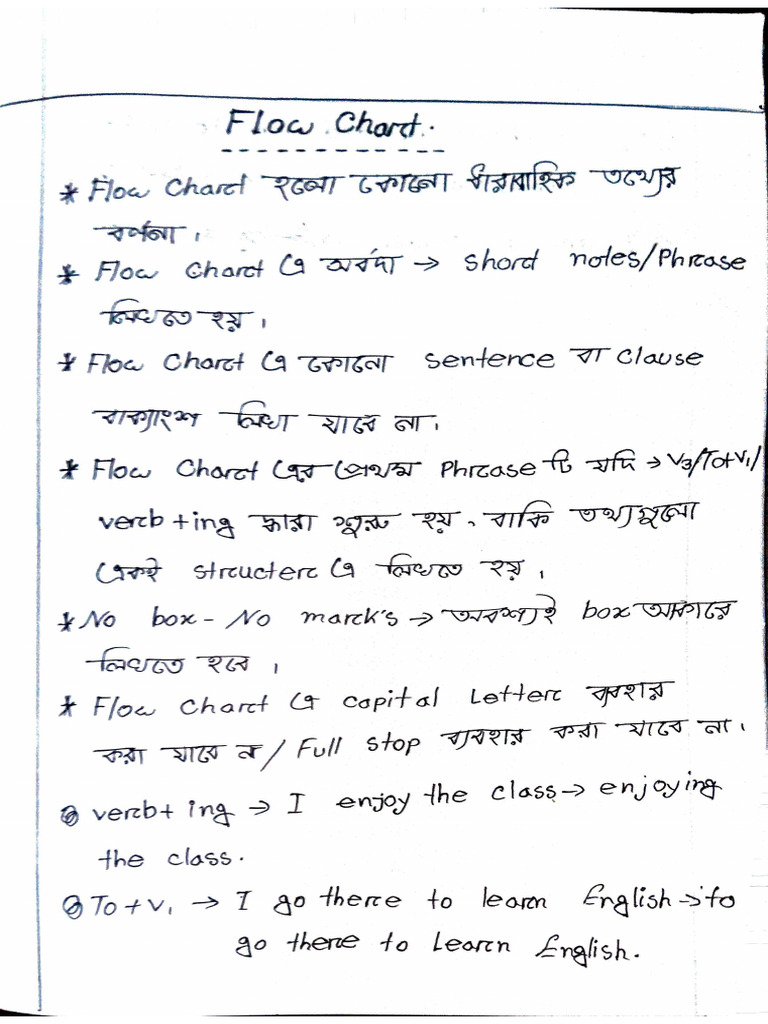 Flow Chart.
* Flow Chart হলো কোনো ধারাবাহিক তথ্যের
বর্ণনা ।
* Flow Chart এ সর্বদা → short notes/Phrase
লিখতে হয় ।
* Flow Chart এ কোনো sentence বা clause
বাক্যাংশ লিখা যাবে না ।
* Flow Chart এর প্রথম Phrase টি যদি → V3/To+V1/
verb +ing দ্বারা শুরু হয় , বাকি তথ্যগুলো
একই structer এ লিখতে হয় ।
* No box - No mark's → অবশ্যই box আকারে
লিখতে হবে ।
* Flow Chart এ capital Letter ব্যবহার
করা যাবে না / Full stop ব্যবহার করা যাবে না ।
verb+ ing → I enjoy the class → enjoying
the class.
To + V1 → I go there to learn English → to
go there to Learn English.